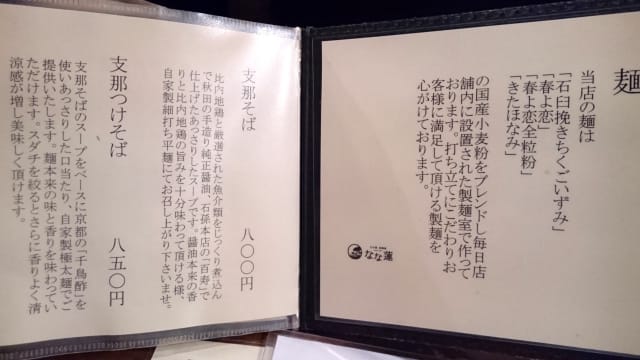 麺
当店の麺は
「石臼挽きちくごいずみ」
「春よ恋」
「春よ恋全粒粉」
「きたほなみ」
の国産小麦粉をブレンドし毎日店
舗内に設置された製麺室で作って
おります。打ち立てにこだわりお
客様に満足して頂ける製麺を
心がけております。
なな蓮
支那そば 八〇〇円
比内地鶏と厳選された魚介類をじっくり煮込ん
で秋田の手造り純正醤油、石孫本店の「百寿」で
仕上げたあっさりしたスープです。醤油本来の香
りと比内地鶏の旨みを十分味わって頂ける様、
自家製細打ち平麺にてお召し上がり下さいませ。
支那つけそば 八五〇円
支那そばのスープをベースに京都の「千鳥酢」を
使いあっさりした口当たり、自家製極太麺でご
提供いたします。麺本来の味と香りを味わってい
ただけます。スダチを絞るとさらに香りよく清
涼感が増し美味しく頂けます。